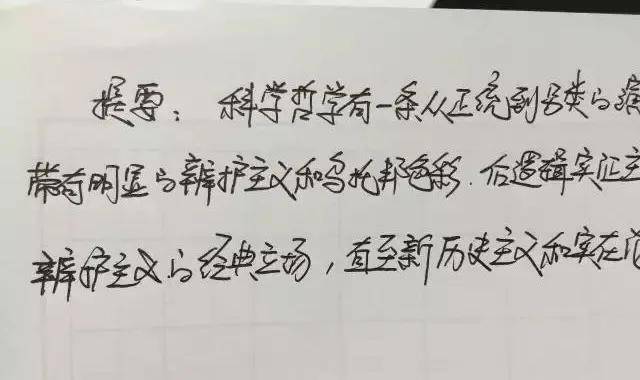 提要：科学哲学有一条从正统到另类的演
带有明显的辨护主义和乌托邦色彩.后逻辑实证主
辨护主义的经典立场，直至新历史主义和实在论